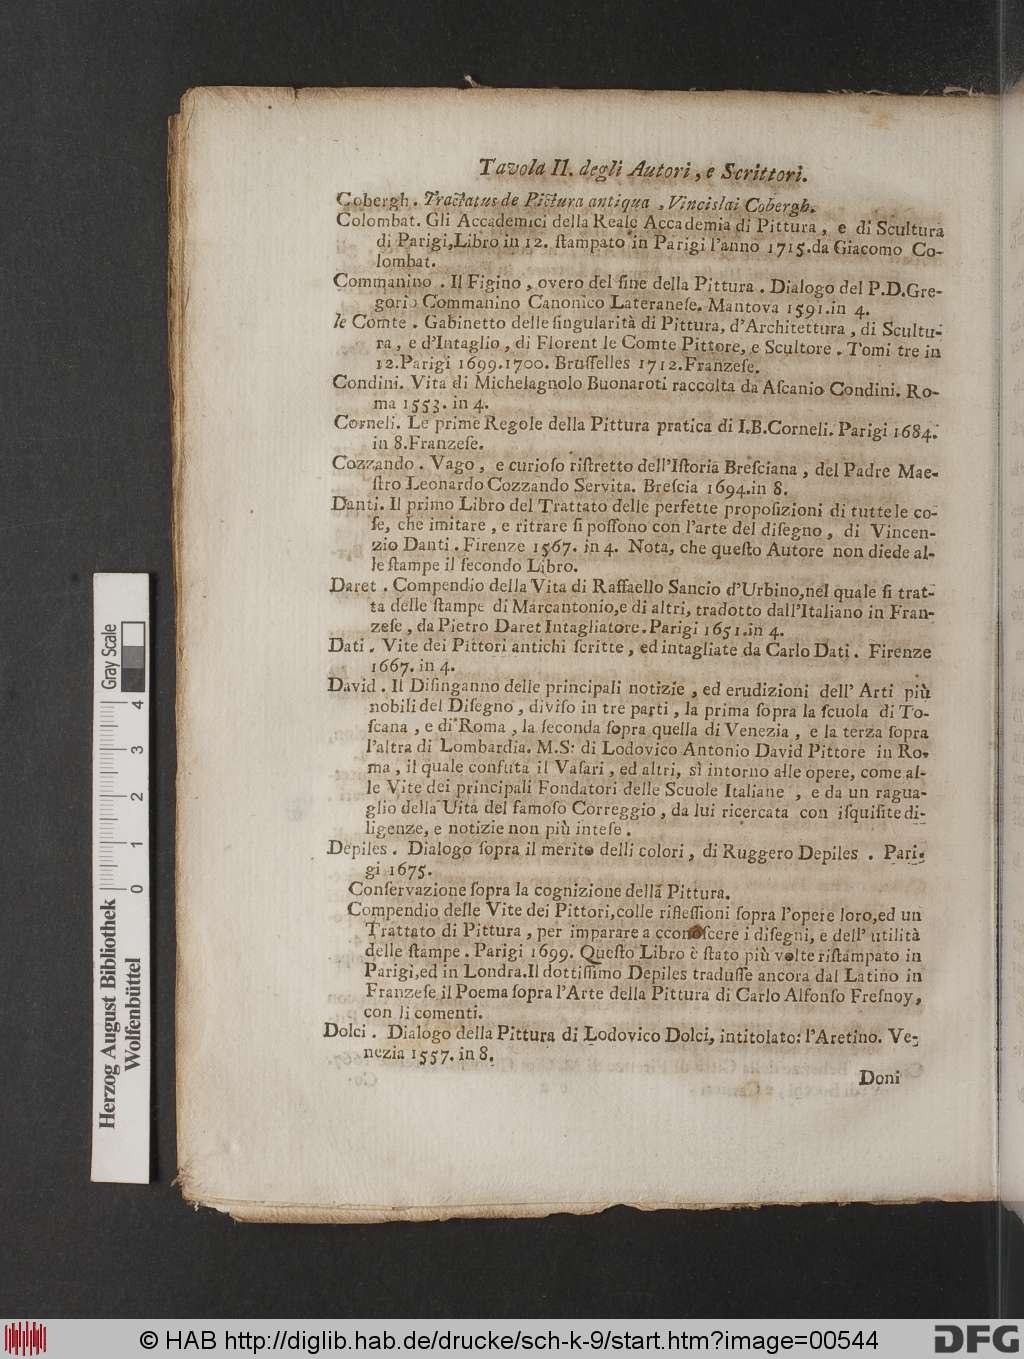 Tavola II. degli Autori, e Scrittori.
Cobergh. Tractatus de Pictura antiqua, Vincislai Cobergh.
Colombat. Gli Accademici della Reale Accademia di Pittura, e di Scultura
di Parigi, Libro in 12. ſtampato in Parigi l'anno 1715. da Giacomo Co-
lombat.
Commanino. Il Figino, overo del fine della Pittura. Dialogo del P.D.Gre-
gorio Commanino Canonico Lateraneſe. Mantova 1591. in 4.
le Comte. Gabinetto delle ſingularità di Pittura, d'Architettura, di Scultu-
ra, e d'Intaglio, di Florent le Comte Pittore, e Scultore. Tomi tre in
12. Parigi 1699. 1700. Bruſſelles 1712. Franzeſe.
Condini. Vita di Michelagnolo Buonaroti raccolta da Aſcanio Condini. Ro-
ma 1553. in 4.
Corneli. Le prime Regole della Pittura pratica di I.B.Corneli. Parigi 1684.
in 8. Franzeſe.
Cozzando. Vago, e curioſo riſtretto dell'Iſtoria Breſciana, del Padre Mae-
ſtro Leonardo Cozzando Servita. Breſcia 1694. in 8.
Danti. Il primo Libro del Trattato delle perfette propoſizioni di tutte le co-
ſe, che imitare, e ritrare ſi poſſono con l'arte del diſegno, di Vincen-
zio Danti. Firenze 1567. in 4. Nota, che queſto Autore non diede al-
le ſtampe il ſecondo Libro.
Daret. Compendio della Vita di Raffaello Sancio d'Urbino, nel quale ſi trat-
ta delle ſtampe di Marcantonio, e di altri, tradotto dall'Italiano in Fran-
zeſe, da Pietro Daret Intagliatore. Parigi 1651. in 4.
Dati. Vite dei Pittori antichi ſcritte, ed intagliate da Carlo Dati. Firenze
1667. in 4.
David. Il Diſinganno delle principali notizie, ed erudizioni dell' Arti più
nobili del Diſegno, diviſo in tre parti, la prima ſopra la ſcuola di To-
ſcana, e di Roma, la ſeconda ſopra quella di Venezia, e la terza ſopra
l'altra di Lombardia. M.S. di Lodovico Antonio David Pittore in Ro-
ma, il quale confuta il Vaſari, ed altri, sì intorno alle opere, come al-
le Vite dei principali Fondatori delle Scuole Italiane, e da un ragua-
glio della Uita del famoſo Correggio, da lui ricercata con iſquiſite di-
ligenze, e notizie non più inteſe.
Depiles. Dialogo ſopra il merito delli colori, di Ruggero Depiles. Pari-
gi 1675.
Conſervazione ſopra la cognizione della Pittura.
Compendio delle Vite dei Pittori, colle rifleſſioni ſopra l'opere loro, ed un
Trattato di Pittura, per imparare a cconoſcere i diſegni, e dell' utilità
delle ſtampe. Parigi 1699. Queſto Libro è ſtato più volte riſtampato in
Parigi, ed in Londra. Il dottiſſimo Depiles traduſſe ancora dal Latino in
Franzeſe il Poema ſopra l'Arte della Pittura di Carlo Alfonſo Freſnoy,
con li comenti.
Dolci. Dialogo della Pittura di Lodovico Dolci, intitolato: l'Aretino. Ve-
nezia 1557. in 8.
Doni
Herzog August Bibliothek
Wolfenbüttel
Gray Scale
0 1 2 3 4
© HAB http://diglib.hab.de/drucke/sch-k-9/start.htm?image=00544
DFG